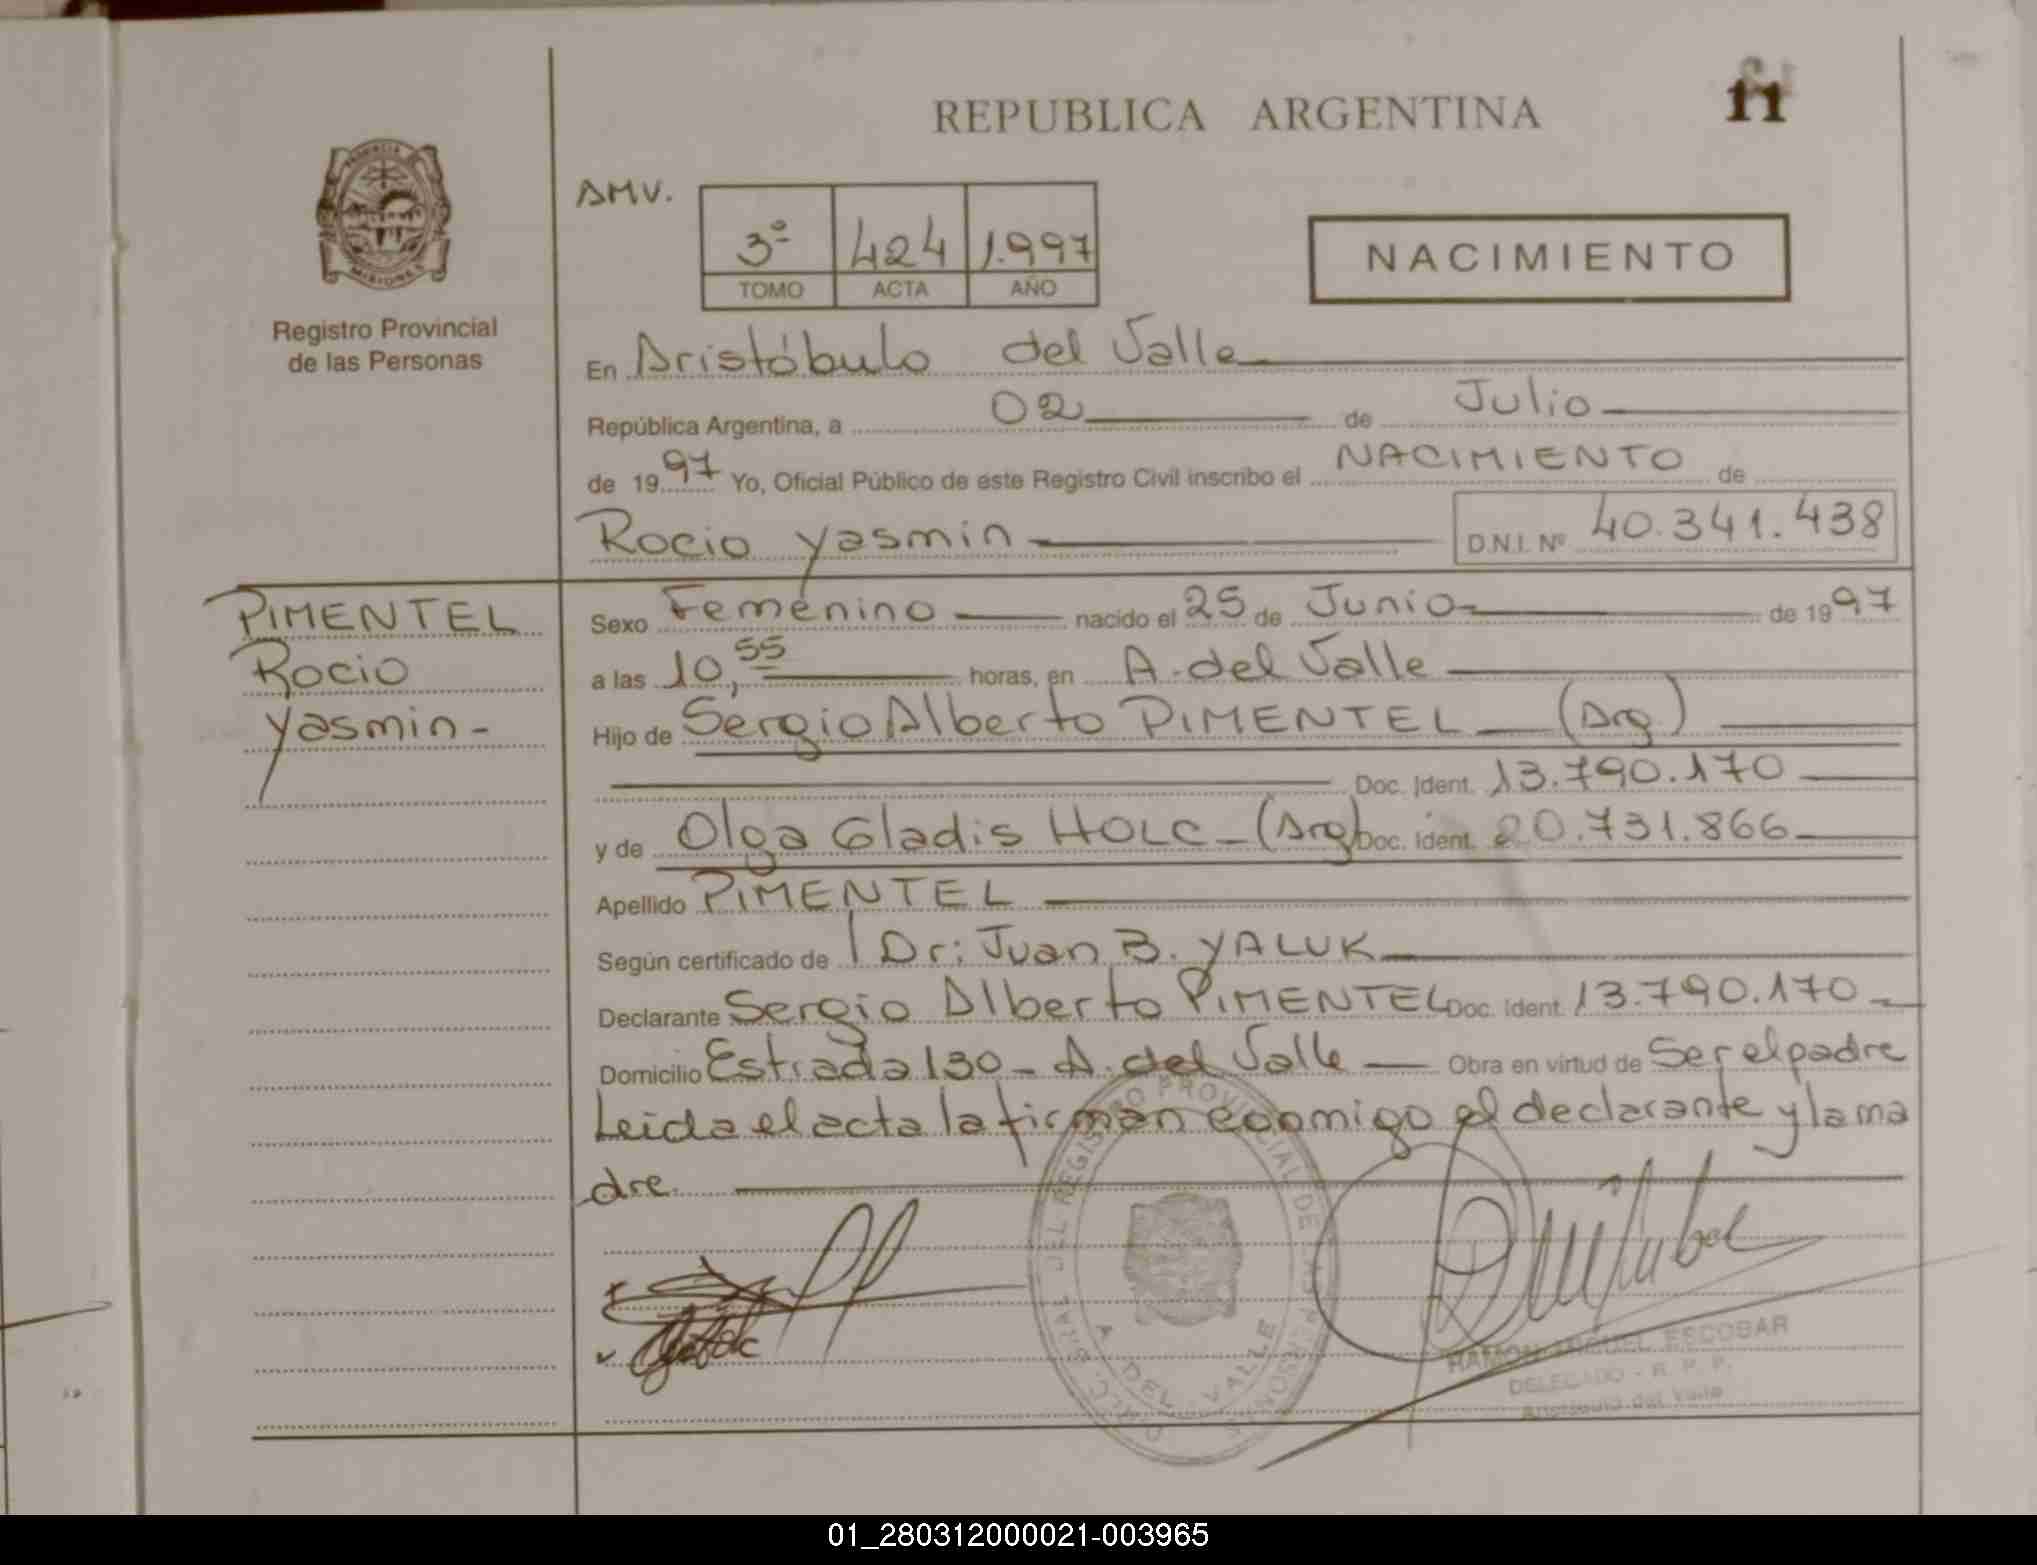 REPUBLICA ARGENTINA
11
PROVINCIA DE
MISIONES
Registro Provincial
de las Personas
AMV.
3º 424 1.997
TOMO ACTA AÑO
NACIMIENTO
En Aristóbulo del Valle
República Argentina, a 02 de Julio
de 1997 Yo, Oficial Público de este Registro Civil inscribo el NACIMIENTO de
Rocio Yasmin D.N.I. Nº 40.341.438
PIMENTEL
Rocio
Yasmin-
Sexo Femenino nacido el 25 de Junio de 1997
a las 10,55 horas, en A. del Valle
Hijo de Sergio Alberto PIMENTEL (Arg)
Doc. Ident. 13.790.170
y de Olga Gladis HOLC - (Arg) Doc. Ident. 20.731.866
Apellido PIMENTEL
Según certificado de Dr: Juan B. YALUK
Declarante Sergio Alberto PIMENTEL Doc. Ident. 13.790.170
Domicilio Estrada 130 - A. del Valle Obra en virtud de Ser el padre
Leida el acta la firman conmigo el declarante y la ma
dre
REGISTRO PROVINCIAL DE LAS PERSONAS
A. DEL VALLE
RAMON MIGUEL ESCOBAR
DELEGADO - R. P. P.
Aristóbulo del Valle
01_280312000021-003965